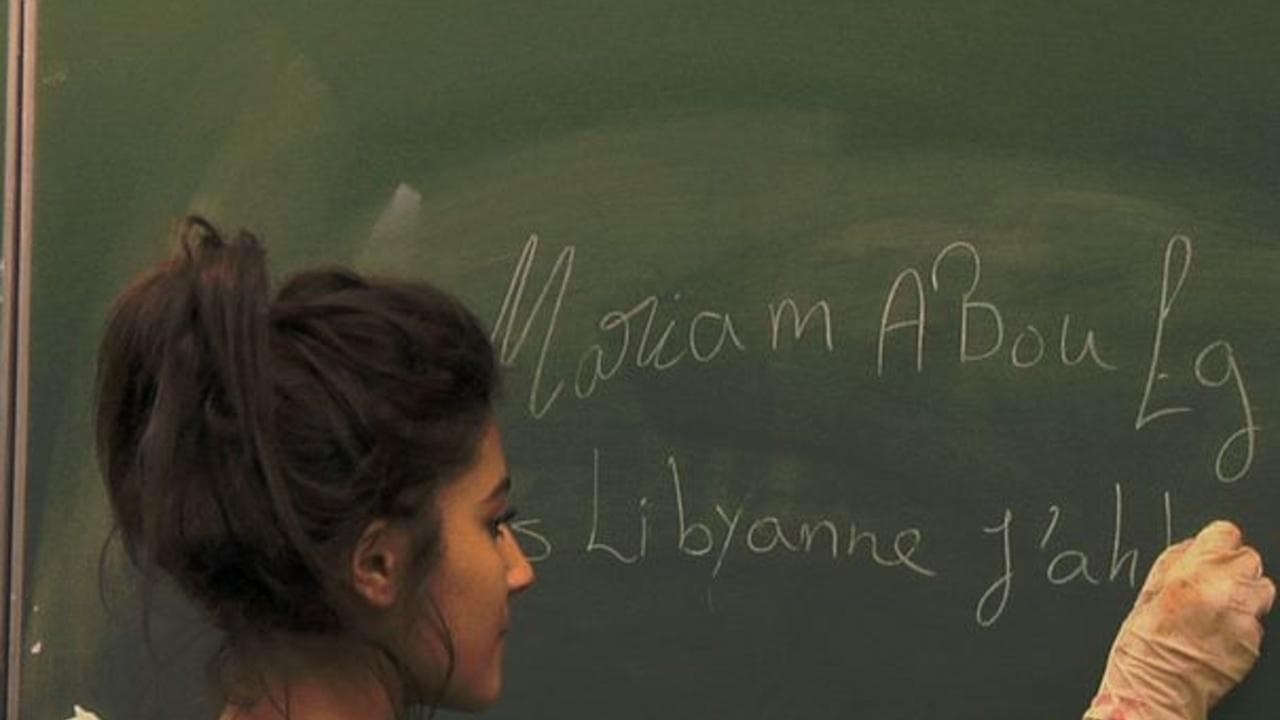 Mariam ABou Lg
s Libyanne J'ah